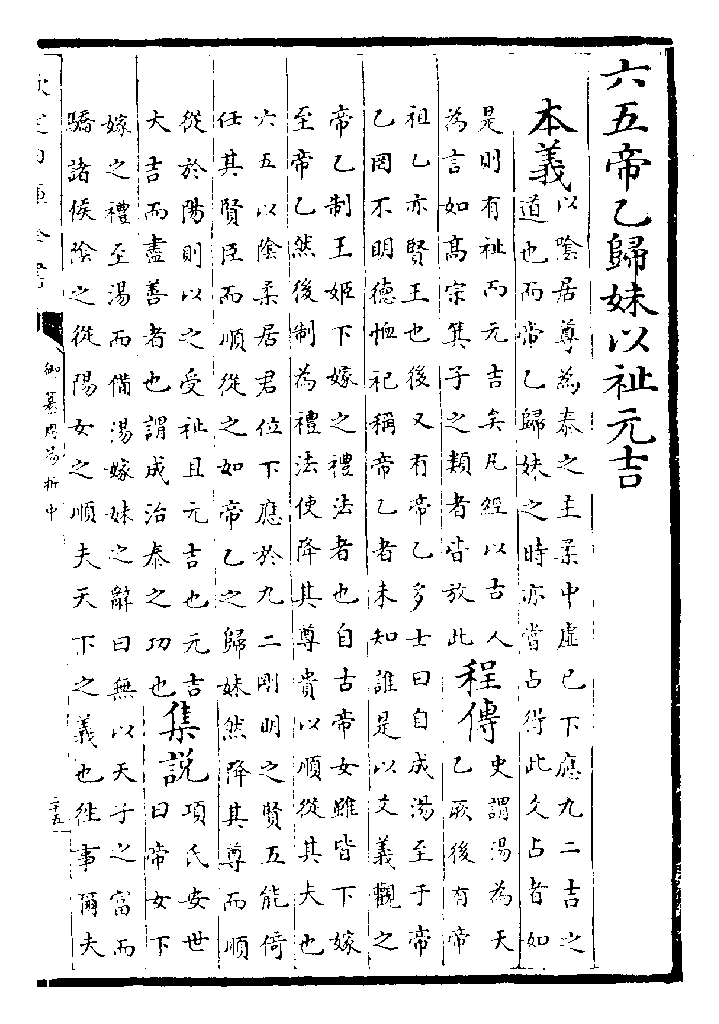 六五帝乙歸妹以祉元吉
本義
以陰居尊為泰之主柔中虛已下應九二吉之
道也而帝乙歸妹之時亦嘗占得此爻占者如
是則有祉而元吉矣凡經以古人
為言如高宗箕子之類者皆放此
程傳
史謂湯為天
乙厥後有帝
祖乙亦賢王也後又有帝乙多士曰自成湯至于帝
乙罔不明德恤祀稱帝乙者未知誰是以爻義觀之
帝乙制王姬下嫁之禮法者也自古帝女雖皆下嫁
至帝乙然後制為禮法使降其尊貴以順從其夫也
六五以陰柔居君位下應於九二剛明之賢五能倚
任其賢臣而順從之如帝乙之歸妹然降其尊而順
從於陽則以之受祉且元吉也元吉
大吉而盡善者也謂成治泰之功也
集説
項氏安世
曰帝女下
嫁之禮至湯而備湯嫁妹之辭曰無以天子之富而
驕諸侯陰之從陽女之順夫天下之義也徃事爾夫
欽定四庫全書
御纂周易折中
二十五